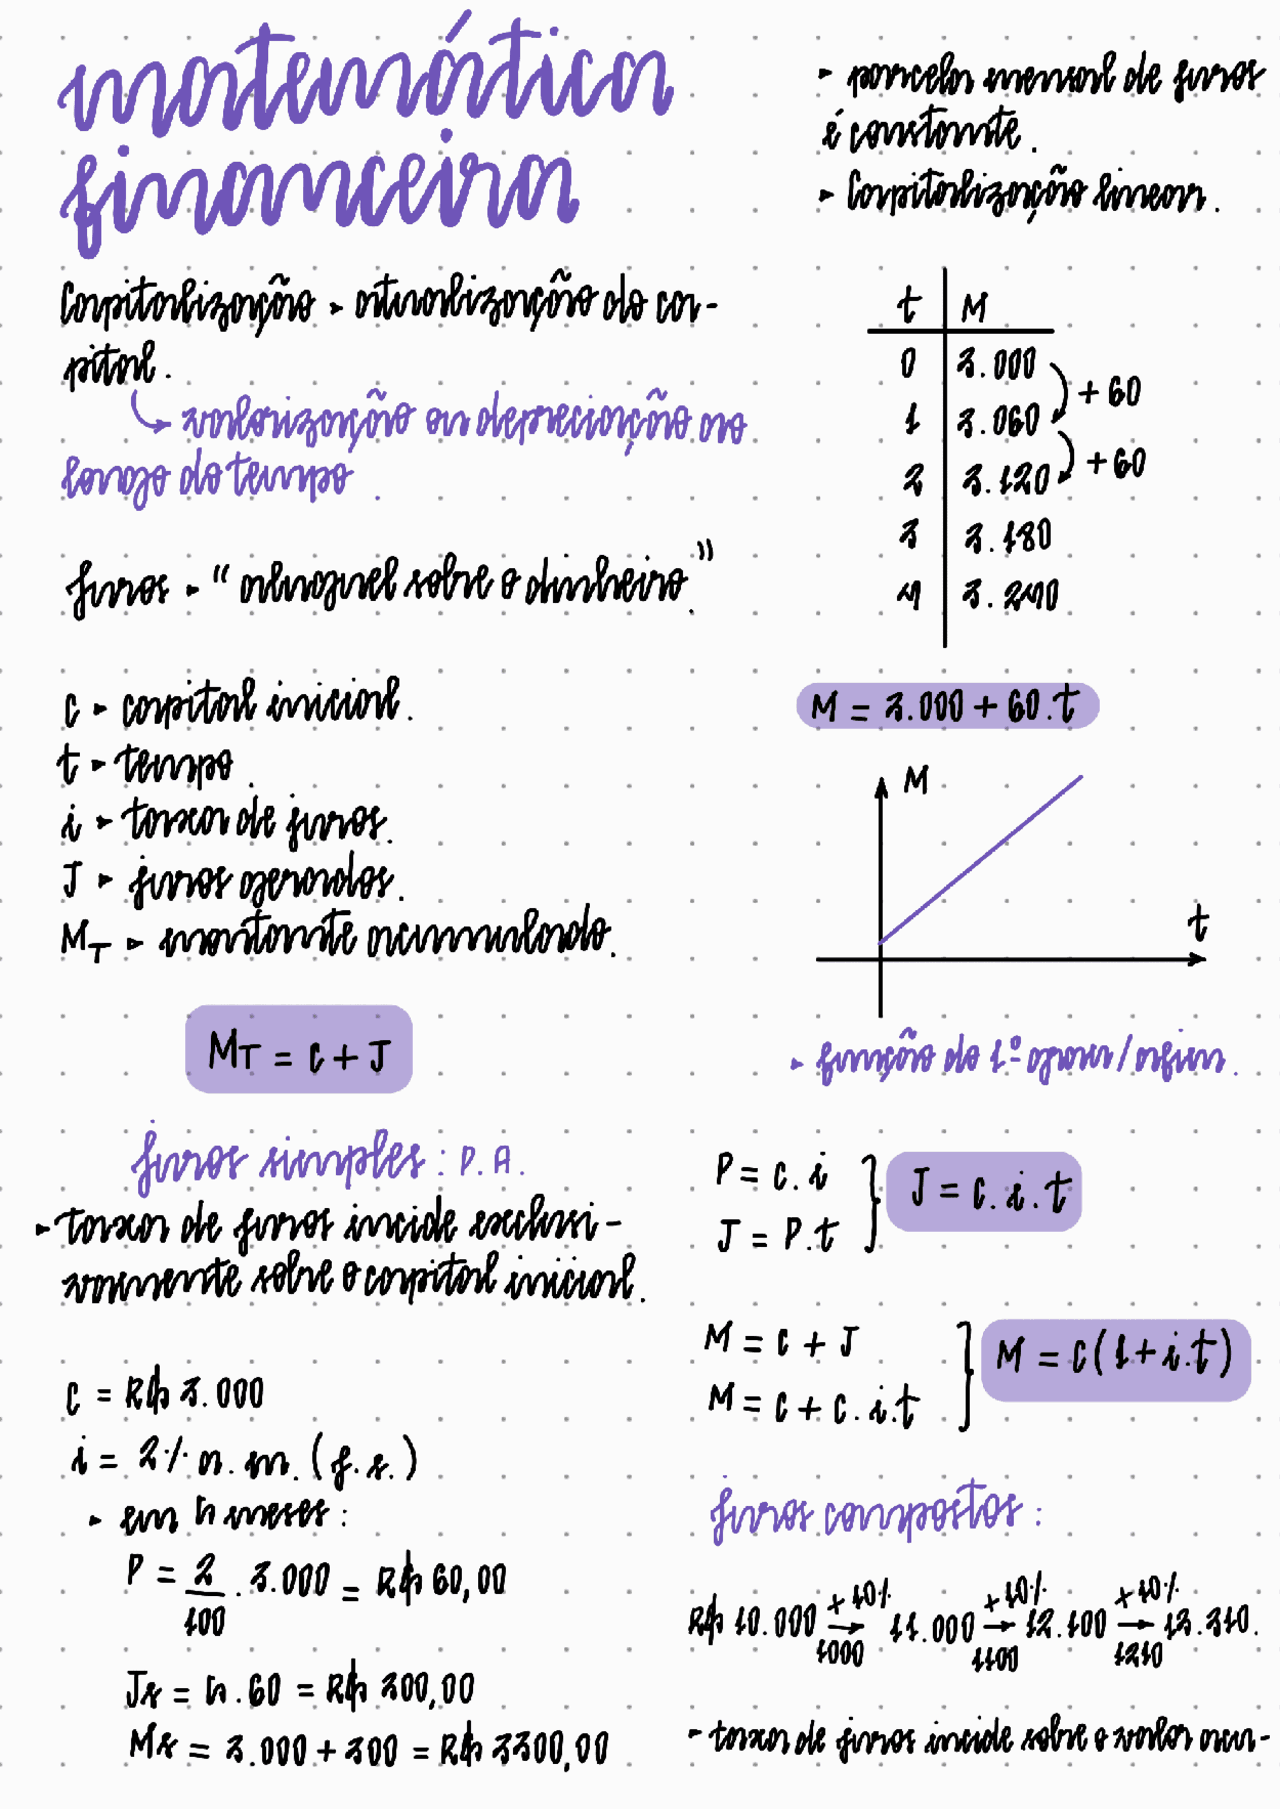 matemática
financeira
Capitalização ► atualização do ca-
pital.
valorização ou depreciação ao
longo do tempo.
juros ► “aluguel sobre o dinheiro.”
c ► capital inicial.
t ► tempo.
i ► taxa de juros.
J ► juros gerados.
MT ► montante acumulado.
MT = c + J
juros simples: P.A.
► taxa de juros incide exclusi-
vamente sobre o capital inicial.
c = R$ 3.000
i = 2% a.m. (j.s.)
► em 5 meses:
P = 2/100 . 3.000 = R$ 60,00
J5 = 5.60 = R$ 300,00
M5 = 3.000 + 300 = R$ 3300,00
► parcela mensal de juros
é constante.
► Capitalização linear.
t M
0 3.000
+ 60
1 3.060
+ 60
2 3.120
3 3.180
4 3.240
M = 3.000 + 60.t
M
t
► função do 1º grau/afim.
P = c.i
J = P.t
J = c.i.t
M = c + J
M = c + c.i.t
M = c(1+i.t)
juros compostos:
R$ 10.000 +10% 1000 → 11.000 +10% 1100 → 12.100 +10% 1210 → 13.310.
► taxa de juros incide sobre o valor acu-